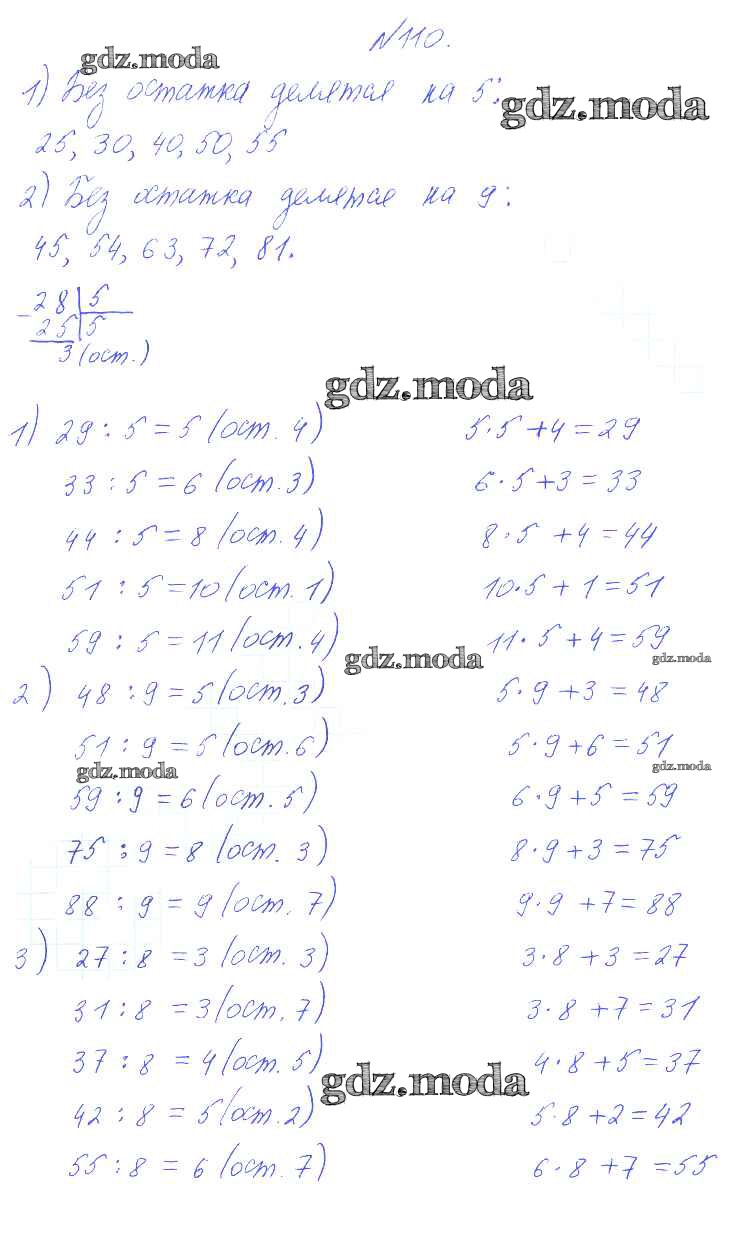 №110.
gdz.moda
1) Без остатка делятся на 5:
gdz.moda
25, 30, 40, 50, 55
2) Без остатка делятся на 9:
45, 54, 63, 72, 81.
- 28 | 5
25 | 5
3 (ост.)
gdz.moda
1) 29 : 5 = 5 (ост. 4) 5·5 + 4 = 29
33 : 5 = 6 (ост. 3) 6·5 + 3 = 33
44 : 5 = 8 (ост. 4) 8·5 + 4 = 44
51 : 5 = 10 (ост. 1) 10·5 + 1 = 51
59 : 5 = 11 (ост. 4) 11·5 + 4 = 59
gdz.moda gdz.moda
2) 48 : 9 = 5 (ост. 3) 5·9 + 3 = 48
51 : 9 = 5 (ост. 6) 5·9 + 6 = 51
gdz.moda gdz.moda
59 : 9 = 6 (ост. 5) 6·9 + 5 = 59
75 : 9 = 8 (ост. 3) 8·9 + 3 = 75
88 : 9 = 9 (ост. 7) 9·9 + 7 = 88
3) 27 : 8 = 3 (ост. 3) 3·8 + 3 = 27
31 : 8 = 3 (ост. 7) 3·8 + 7 = 31
37 : 8 = 4 (ост. 5) 4·8 + 5 = 37
gdz.moda
42 : 8 = 5 (ост. 2) 5·8 + 2 = 42
55 : 8 = 6 (ост. 7) 6·8 + 7 = 55